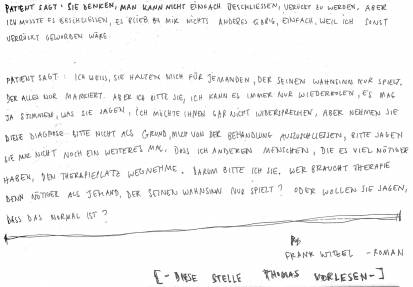 PATIENT SAGT: SIE DENKEN, MAN KANN NICHT EINFACH BESCHLIESSEN, VERRÜCKT ZU WERDEN, ABER
ICH MUSSTE ES BESCHLIESSEN, ES BLIEB MIR NICHTS ANDERES ÜBRIG, EINFACH, WEIL ICH SONST
VERRÜCKT GEWORDEN WÄRE.
PATIENT SAGT: ICH WEISS, SIE HALTEN MICH FÜR JEMANDEN, DER SEINEN WAHNSINN NUR SPIELT.
DER ALLES NUR MARKIERT. ABER ICH BITTE SIE, ICH KANN ES IMMER NUR WIEDERHOLEN, ES MAG
JA STIMMEN, WAS SIE SAGEN, ICH MÖCHTE IHNEN GAR NICHT WIDERSPRECHEN, ABER NEHMEN SIE
DIESE DIAGNOSE BITTE NICHT ALS GRUND, MICH VON DER BEHANDLUNG AUSZUSCHLIESSEN, BITTE SAGEN
SIE MIR NICHT NOCH EIN WEITERES MAL, DASS ICH ANDEREN MENSCHEN, DIE ES VIEL NÖTIGER
HABEN, DEN THERAPIEPLATZ WEGNEHME. DARUM BITTE ICH SIE, WER BRAUCHT THERAPIE
DENN NÖTIGER ALS JEMAND, DER SEINEN WAHNSINN NUR SPIELT? ODER WOLLEN SIE SAGEN,
DASS DAS NORMAL IST?
FRANK WITZEL - ROMAN
[- DIESE STELLE THOMAS VORLESEN -]